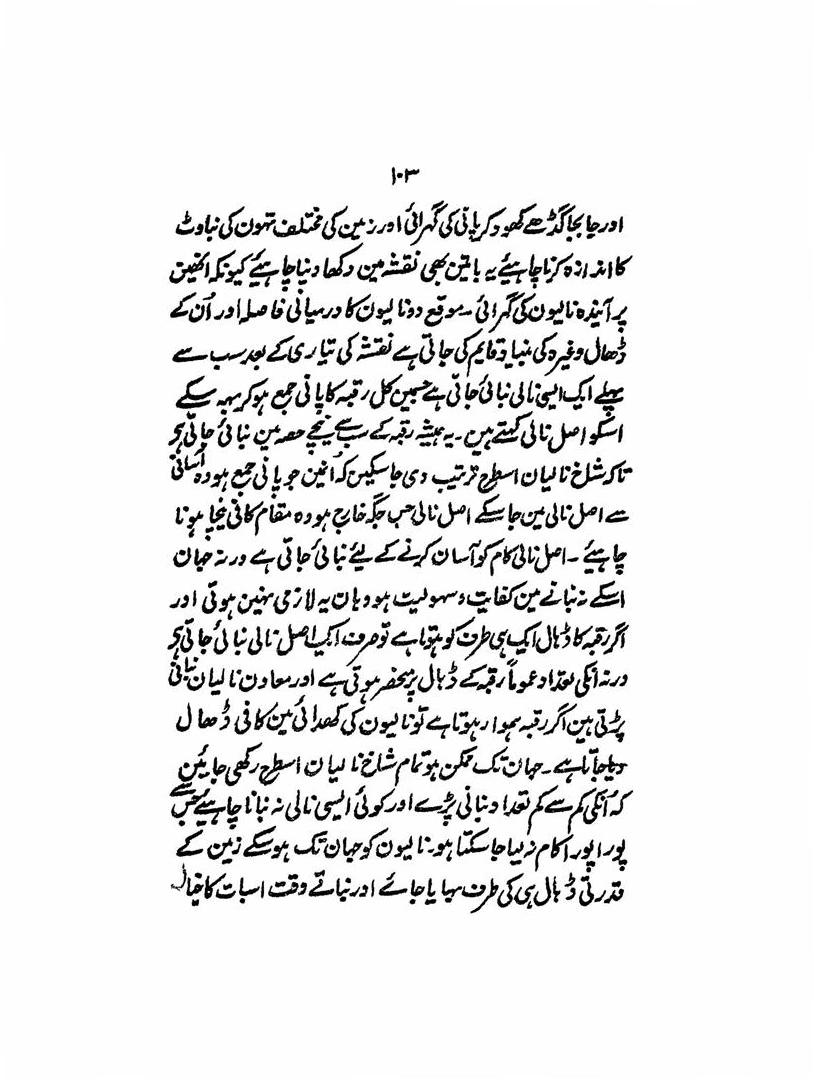 ۱۰۳
اور جا بجا گڈھے کھود کر پانی کی گہرائی اور زمین کی مختلف تہون کی بناوٹ
کا اندازہ کرنا چاہیئے یہ باتین بھی نقشہ مین دکھا دینا چاہیئے کیونکہ انھین
پر آیندہ نالیون کی گہرائی ۔ موقع دو نالیون کا درمیانی فاصلہ اور اُن کے
ڈھال وغیرہ کی بنیاد قایم کی جاتی ہے نقشہ کی تیاری کے بعد سب سے
پہلے ایک ایسی نالی بنائی جاتی ہے جسمین کل رقبہ کا پانی جمع ہو کر بہہ سکے
اسکو اصل نالی کہتے ہین ۔ یہ ہمیشہ رقبہ کے سب سے نیچے حصہ مین بنائی جاتی ہے
تاکہ شاخ نالیان اسطرح ترتیب دی جا سکین کہ اُنمین جو پانی جمع ہو وہ آسانی
سے اصل نالی مین جا سکے اصل نالی جس جگہ خارج ہو وہ مقام کافی نیچا ہونا
چاہیئے ۔ اصل نالی کام کو آسان کرنے کے لیئے بنائی جاتی ہے ورنہ جہان
اسکے نہ بنانے مین کفایت و سہولیت ہو وہان یہ لازمی نہین ہوتی اور
اگر رقبہ کا ڈہال ایک ہی طرف کو ہوتا ہے تو صرف ایک اصل نالی بنائی جاتی ہے
ورنہ انکی تعداد عموماً رقبہ کے ڈہال پر منحصر ہوتی ہے اور معاون نالیان بنانی
پڑتی ہین اگر رقبہ ہموار ہوتا ہے تو نالیون کی کھدائی مین کافی ڈھال
دیا جاتا ہے ۔ جہان تک ممکن ہو تمام شاخ نالیان اسطرح رکھی جائین
کہ اُنکی کم سے کم تعداد بنانی پڑے اور کوئی ایسی نالی نہ بنانا چاہیئے جس سے
پورا پورا کام نہ لیا جا سکتا ہو ۔ نالیون کو جہان تک ہو سکے زمین کے
قدرتی ڈہال ہی کی طرف بہایا جائے اور بناتے وقت اسبات کا خیال